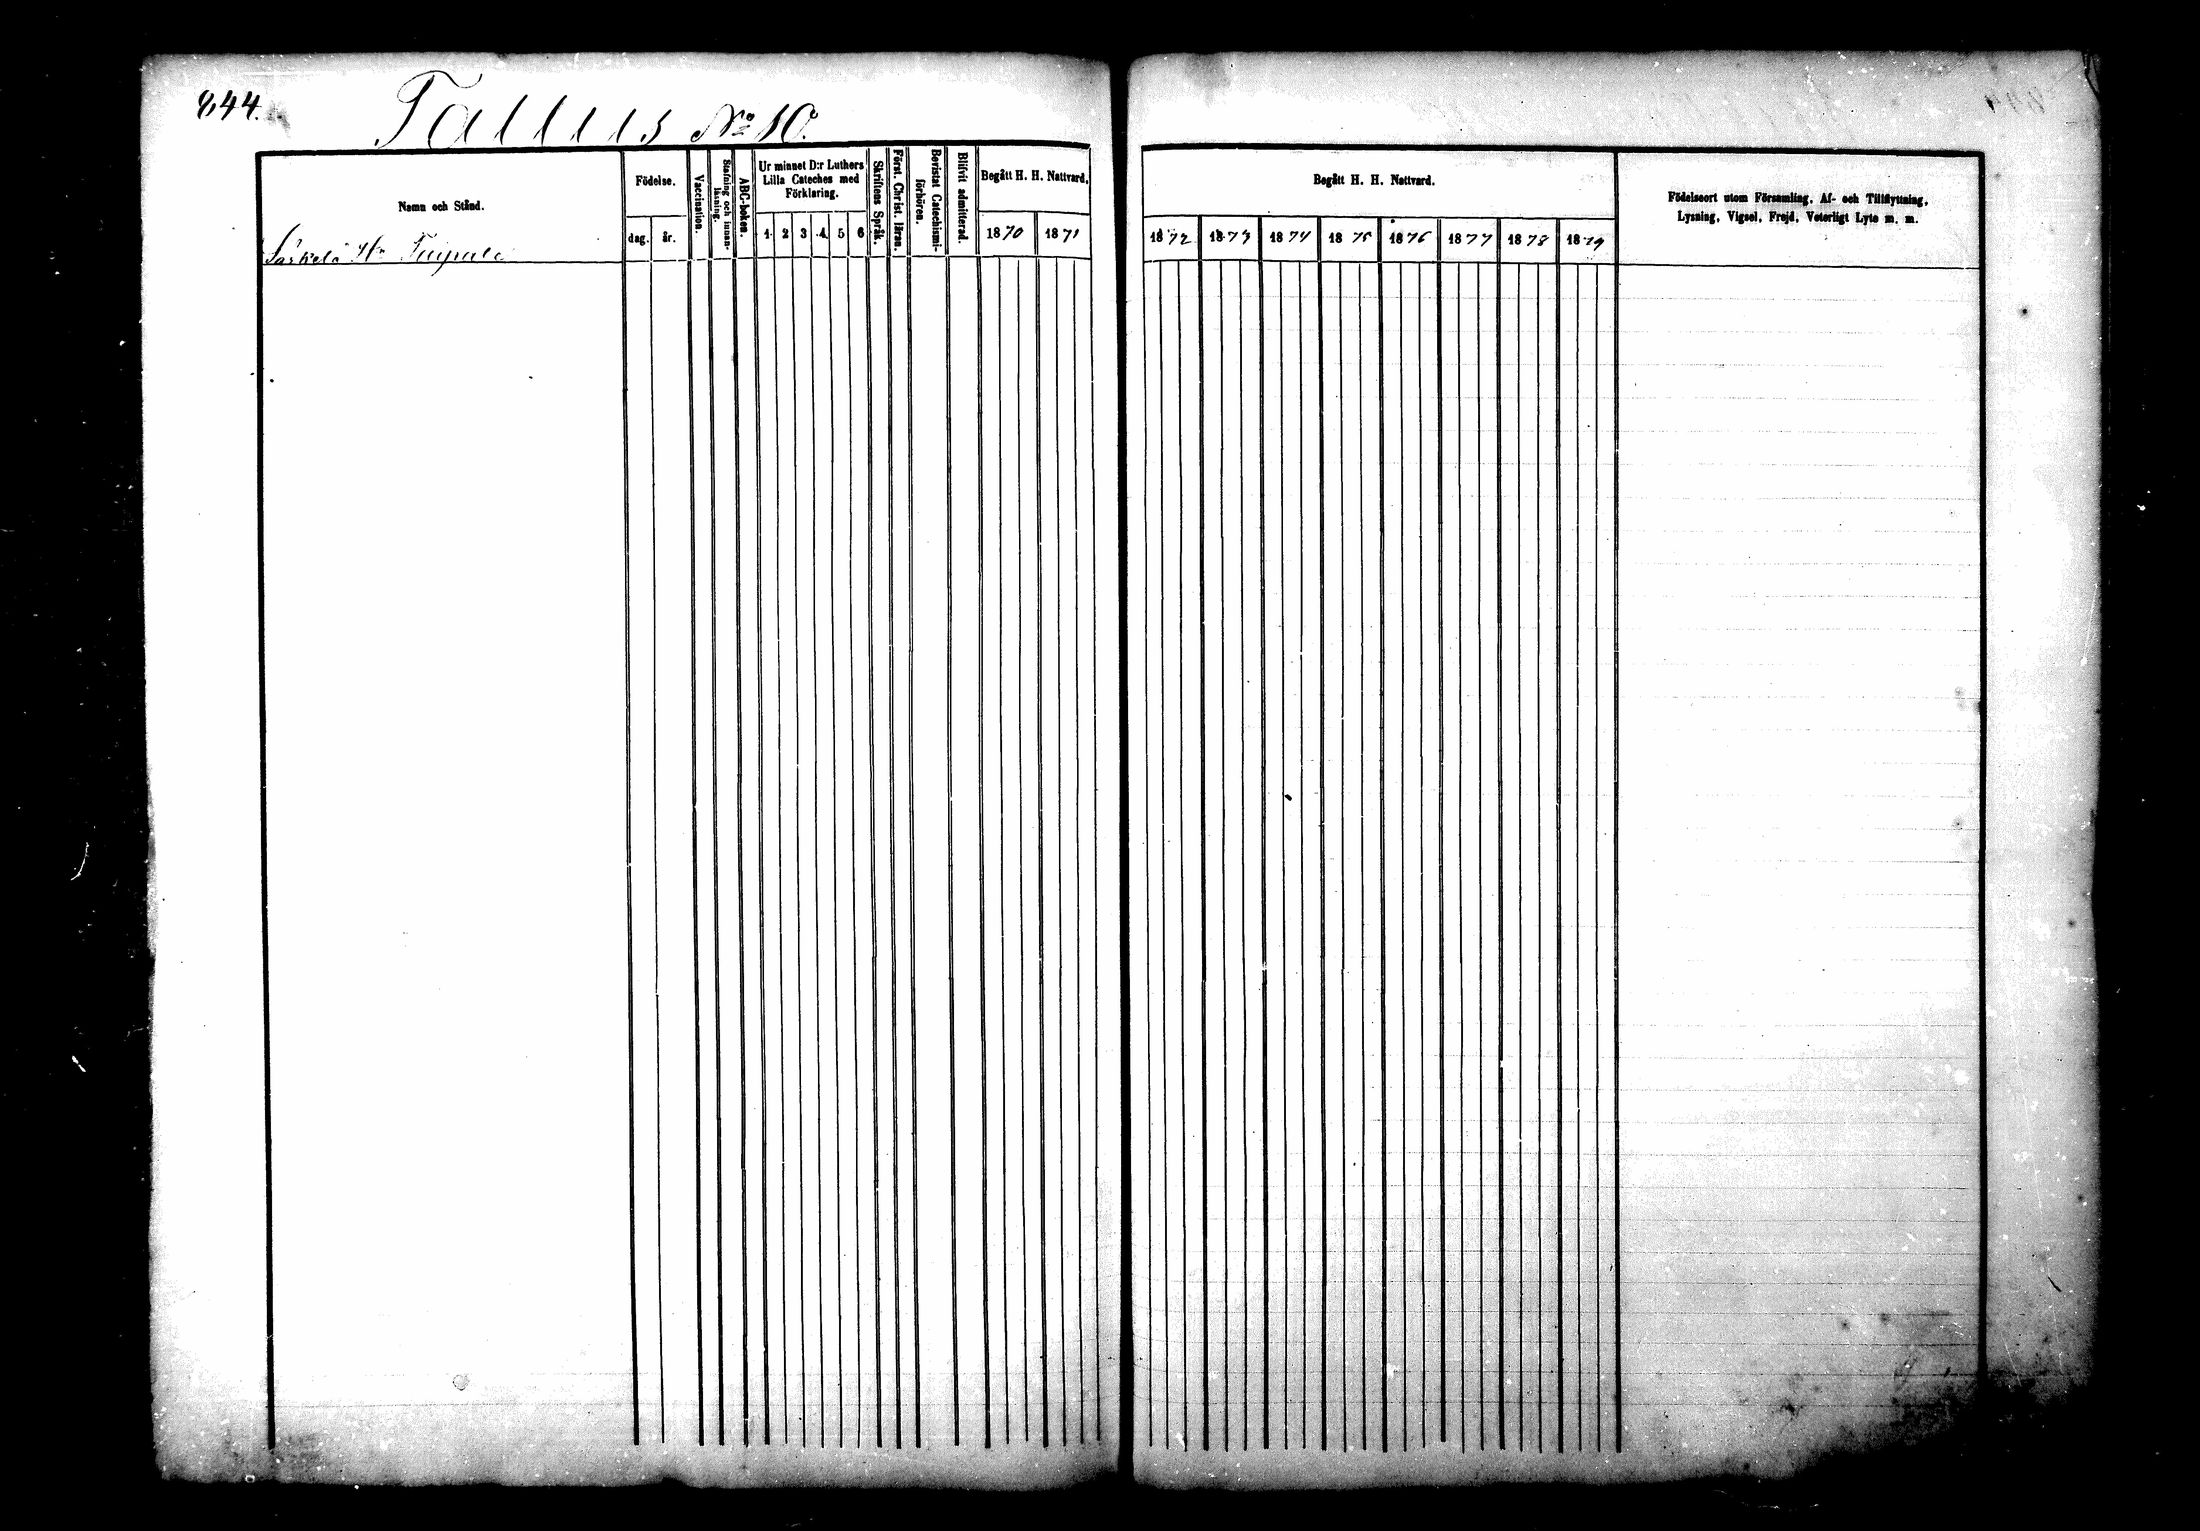 844.
Tallus No 10.
Namn och Stånd.
Födelse.
dag. år.
Vaccination.
Stafning och innan-
läsning.
ABC-boken.
Ur minnet D:r Luthers
Lilla Cateches med
Förklaring.
1 2 3 4 5 6
Skriftens Språk.
Först. Christ. läran.
Bevistat Catechismi-
förhören.
Blifvit admitterad.
Begått H. H. Nattvard.
1870 1871
Begått H. H. Nattvard.
1872 1873 1874 1875 1876 1877 1878 1879
Födelseort utom Församling, Af- och Tillflyttning,
Lysning, Vigsel, Frejd, Veterligt Lyte m. m.